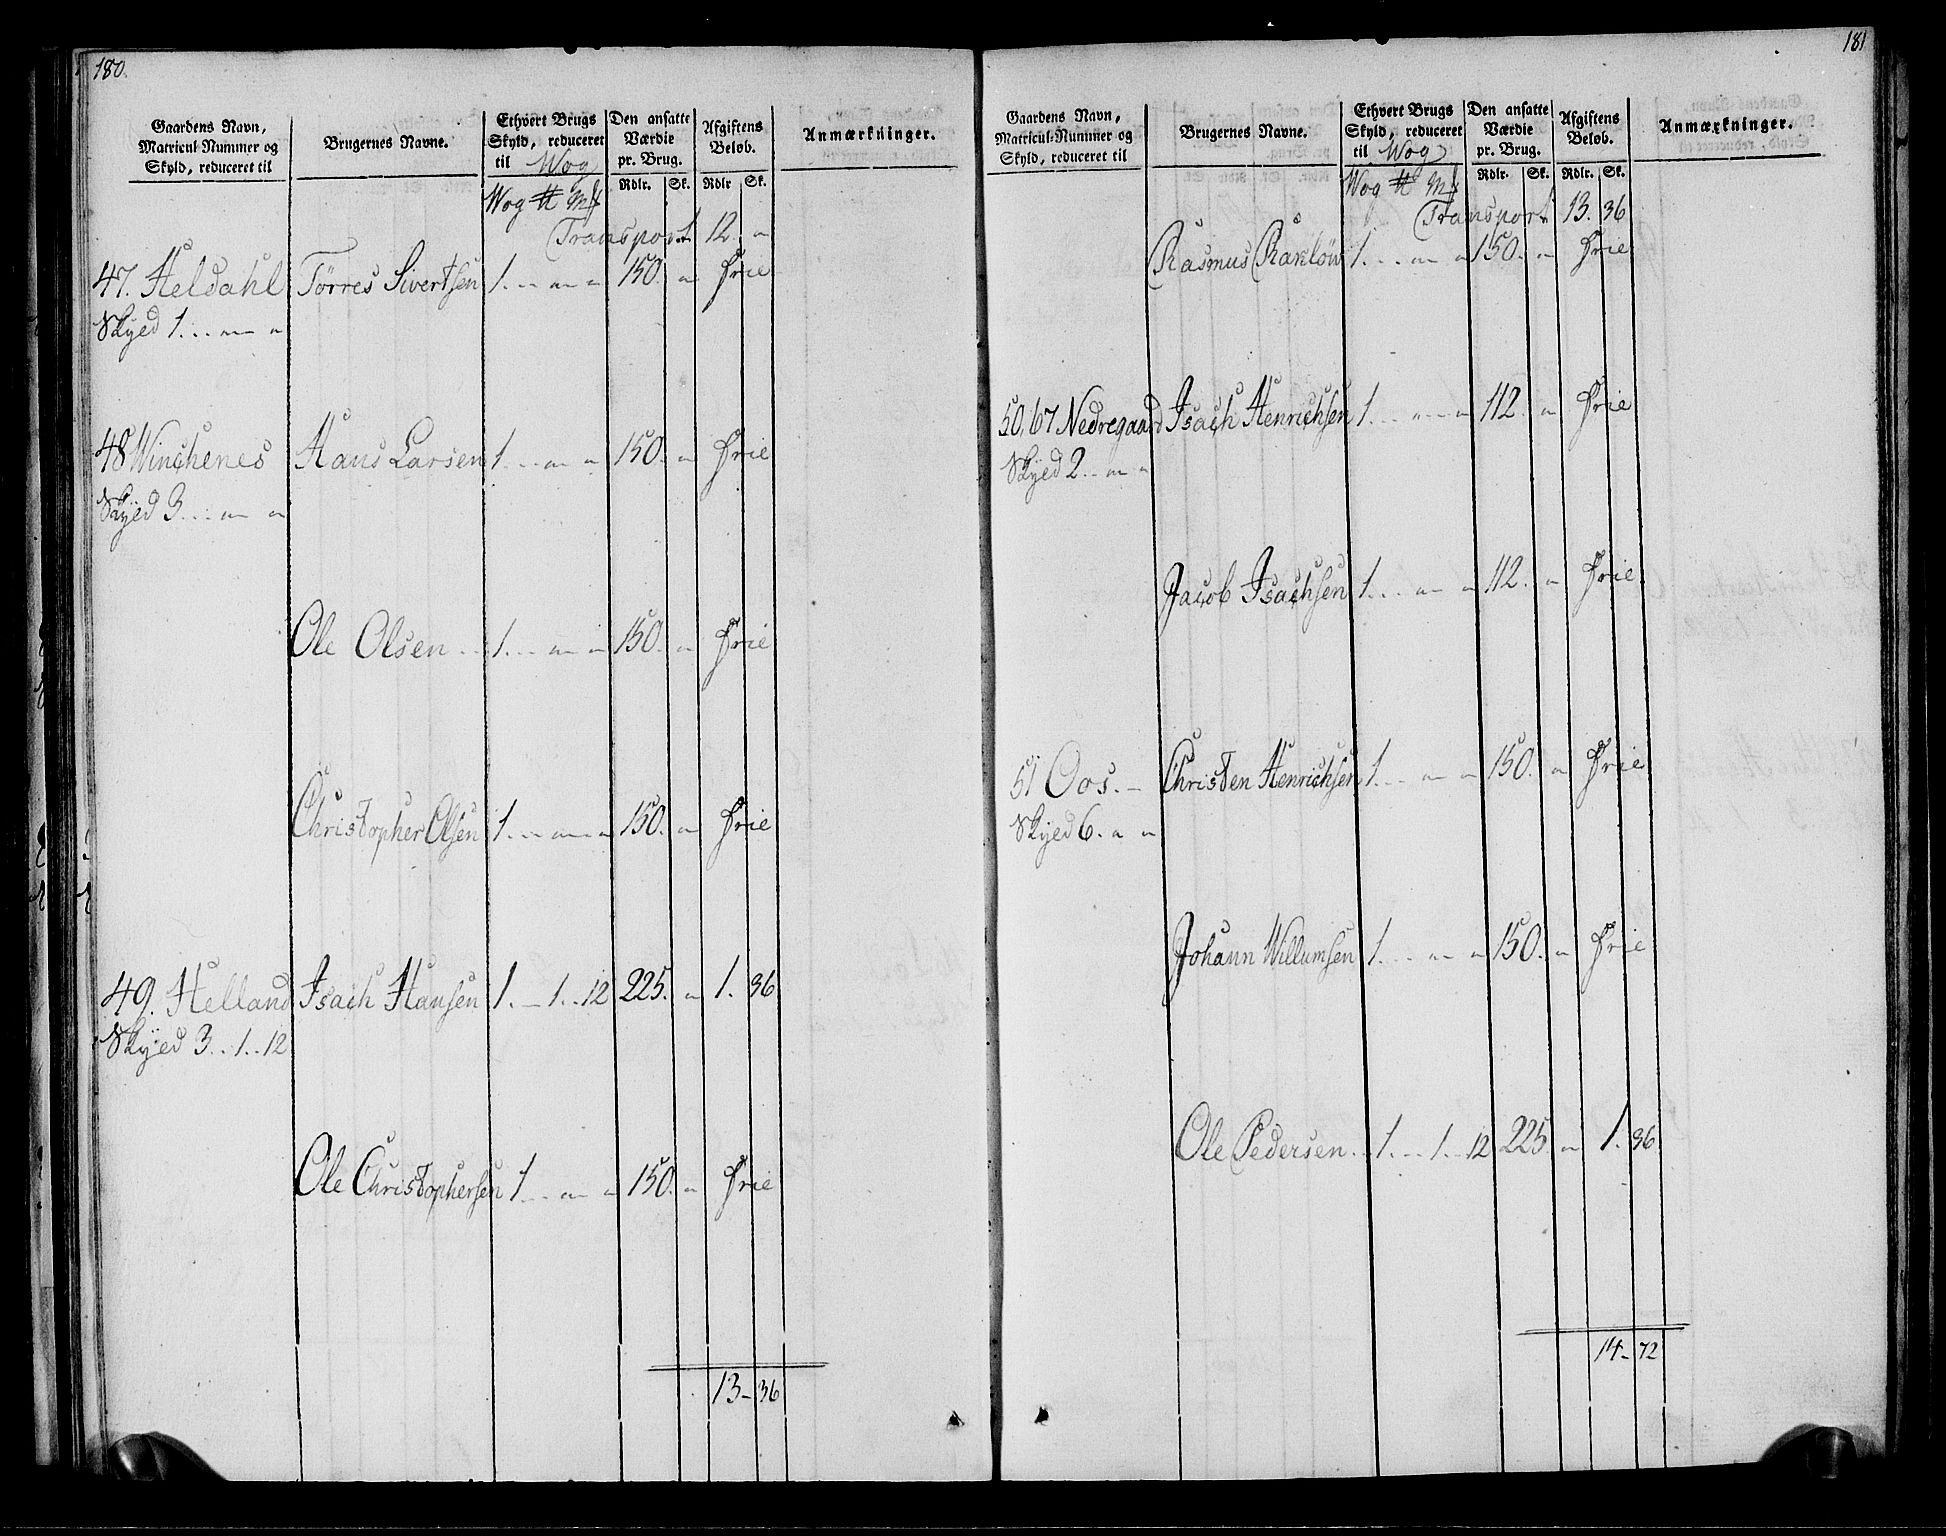 180.
Gaardens Navn, Matricul-Nummer og Skyld, reduceret til
Brugernes Navne.
Ethvert Brugs Skyld, reduceret til Wog
Den ansatte Værdie pr. Brug.
Afgiftens Beløb.
Anmærkninger.
Wog ℔ Mk Rdlr. Sk. Rdlr Sk.
Transport 12. "
47. Heldahl Tørres Sivertsen 1. .. " " 150. " Frie
Skyed 1. .. " "
48 Winchenes Hans Larsen 1. .. " " 150. " Frie
Skyed 3. .. " "
Ole Olsen .. 1. .. " " 150. " Frie
Christopher Olsen 1. .. " " 150. " Frie
49. Helland Isach Hansen 1. - 1. 12 225. " 1. 36
Skyed 3. . 1. . 12
Ole Christophersen 1. .. " " 150. " Frie
13 - 36
181
Gaardens Navn, Matricul-Nummer og Skyld, reduceret til
Brugernes Navne.
Ethvert Brugs Skyld, reduceret til Wog
Den ansatte Værdie pr. Brug.
Afgiftens Beløb.
Anmærkninger.
Wog ℔ Mk Rdlr. Sk. Rdlr. Sk.
Transport 13. 36
Rasmus Rakløw 1. .. " " 150. " Frie
50, 67 Nedregaard Isach Henrichsen 1. .. " " 112. " Frie
Skyed 2. . " "
Jacob Isachsen 1. .. " " 112. " Frie
51 Oos. - Christen Henrichsen 1. .. " " 150. " Frie
Skyed 6. " "
Johann Willumsen 1. .. " " 150. " Frie
Ole Pedersen. . 1. . . 1. . 12 225 " 1. 36.
14 - 72